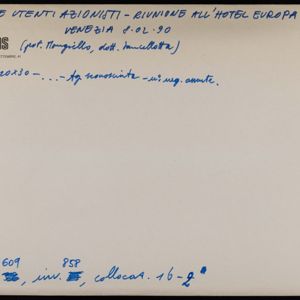 E UTENTI AZIONISTI - RIUNIONE ALL'HOTEL EUROPA
VENEZIA 8.02.90
(prof. Mongiello, dott. Lancellotta)
20x30 - ... - Ag. sconosciuta - n. neg. assente.
609 858
, inv. , collocaz. 16-2